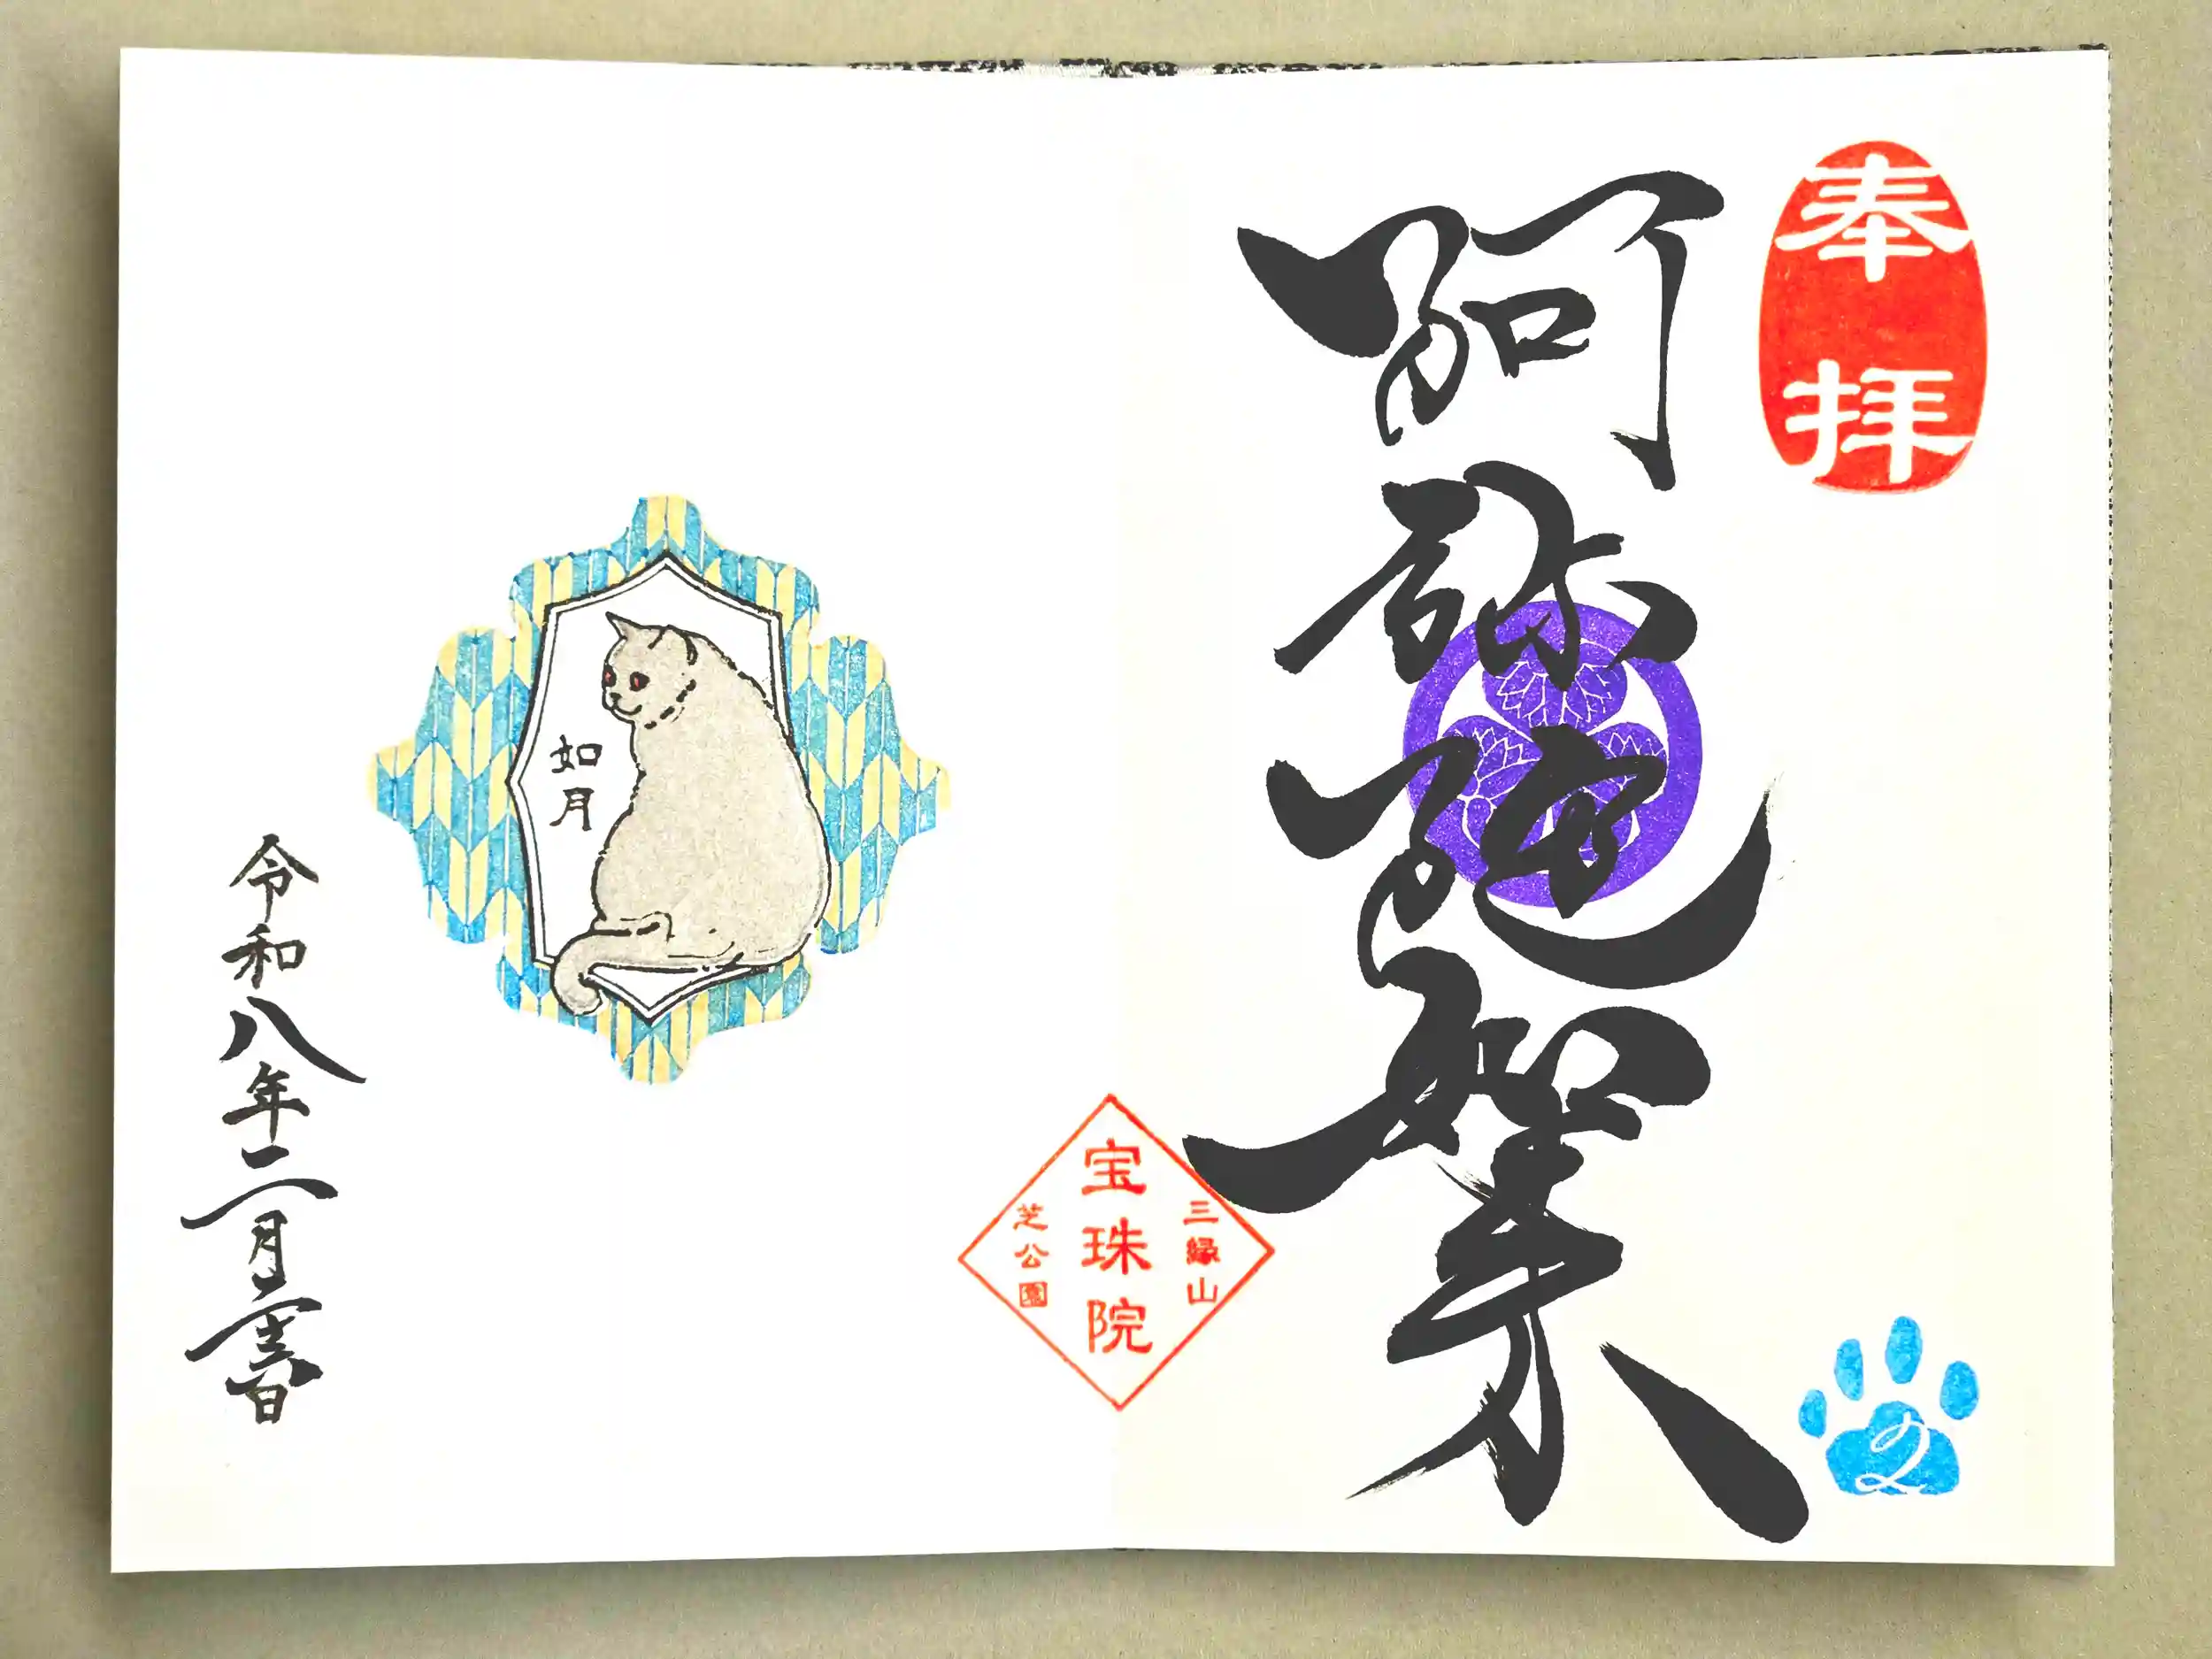 奉拝
阿弥陀如来
2
三縁山
宝珠院
芝公園
如月
令和八年二月日